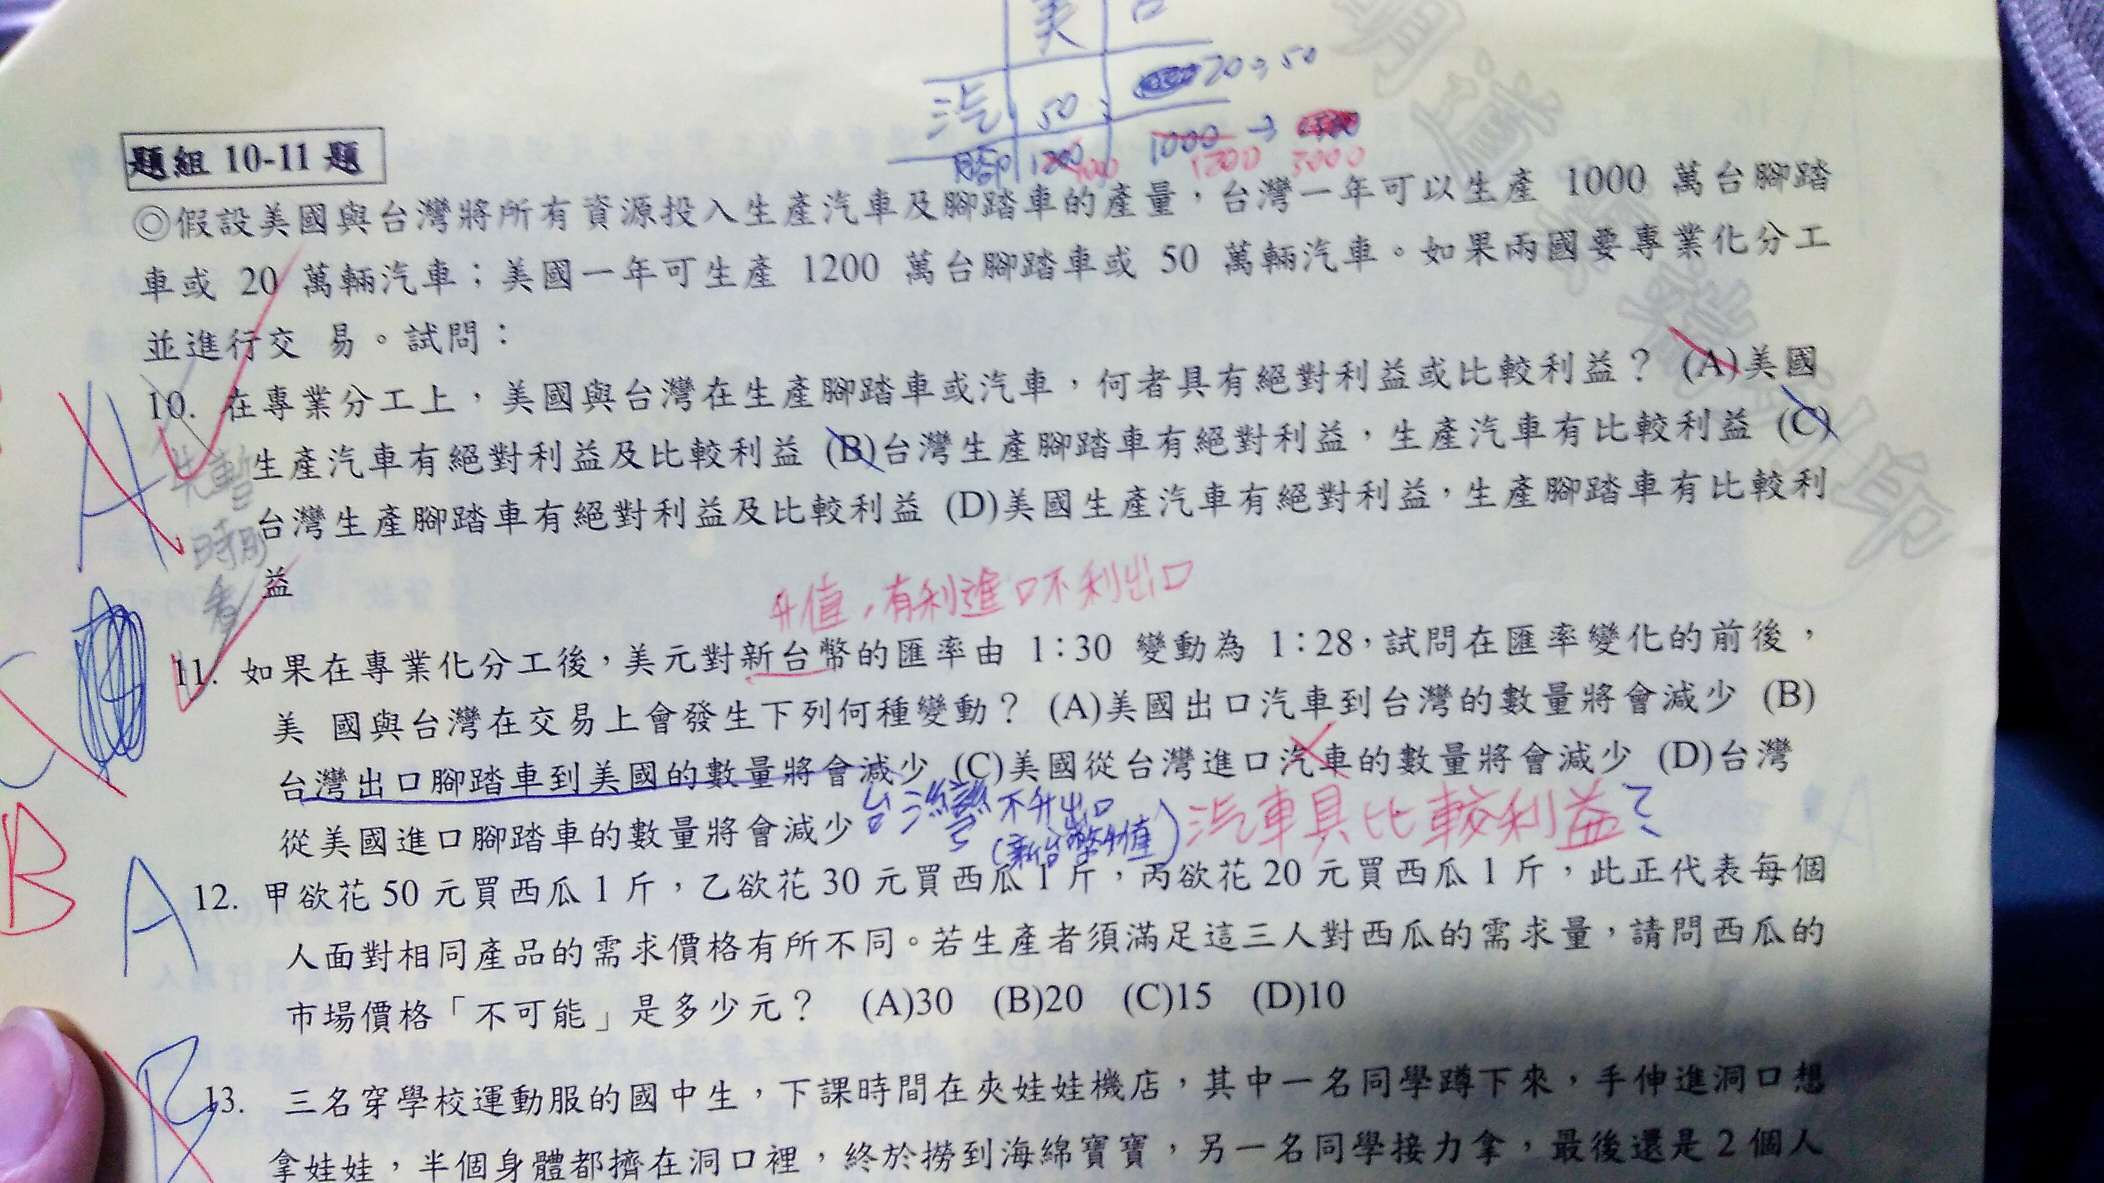 美 台
汽 50 20→50
腳 1200 1000 1000→
1200 3000
題組 10-11 題
◎假設美國與台灣將所有資源投入生產汽車及腳踏車的產量，台灣一年可以生產 1000 萬台腳踏
車或 20 萬輛汽車；美國一年可生產 1200 萬台腳踏車或 50 萬輛汽車。如果兩國要專業化分工
並進行交 易。試問：
A
10. 在專業分工上，美國與台灣在生產腳踏車或汽車，何者具有絕對利益或比較利益？ (A)美國
生產汽車有絕對利益及比較利益 (B)台灣生產腳踏車有絕對利益，生產汽車有比較利益 (C)
台灣生產腳踏車有絕對利益及比較利益 (D)美國生產汽車有絕對利益，生產腳踏車有比較利
益
先暫
時
看
升值，有利進口不利出口
11. 如果在專業化分工後，美元對新台幣的匯率由 1：30 變動為 1：28，試問在匯率變化的前後，
美 國與台灣在交易上會發生下列何種變動？ (A)美國出口汽車到台灣的數量將會減少 (B)
台灣出口腳踏車到美國的數量將會減少 (C)美國從台灣進口汽車的數量將會減少 (D)台灣
從美國進口腳踏車的數量將會減少
C
B
台灣不升出口
(新台幣升值)
汽車具比較利益
A
12. 甲欲花 50 元買西瓜 1 斤，乙欲花 30 元買西瓜 1 斤，丙欲花 20 元買西瓜 1 斤，此正代表每個
人面對相同產品的需求價格有所不同。若生產者須滿足這三人對西瓜的需求量，請問西瓜的
市場價格「不可能」是多少元？ (A)30 (B)20 (C)15 (D)10
B
13. 三名穿學校運動服的國中生，下課時間在夾娃娃機店，其中一名同學蹲下來，手伸進洞口想
拿娃娃，半個身體都擠在洞口裡，終於撈到海綿寶寶，另一名同學接力拿，最後還是 2 個人